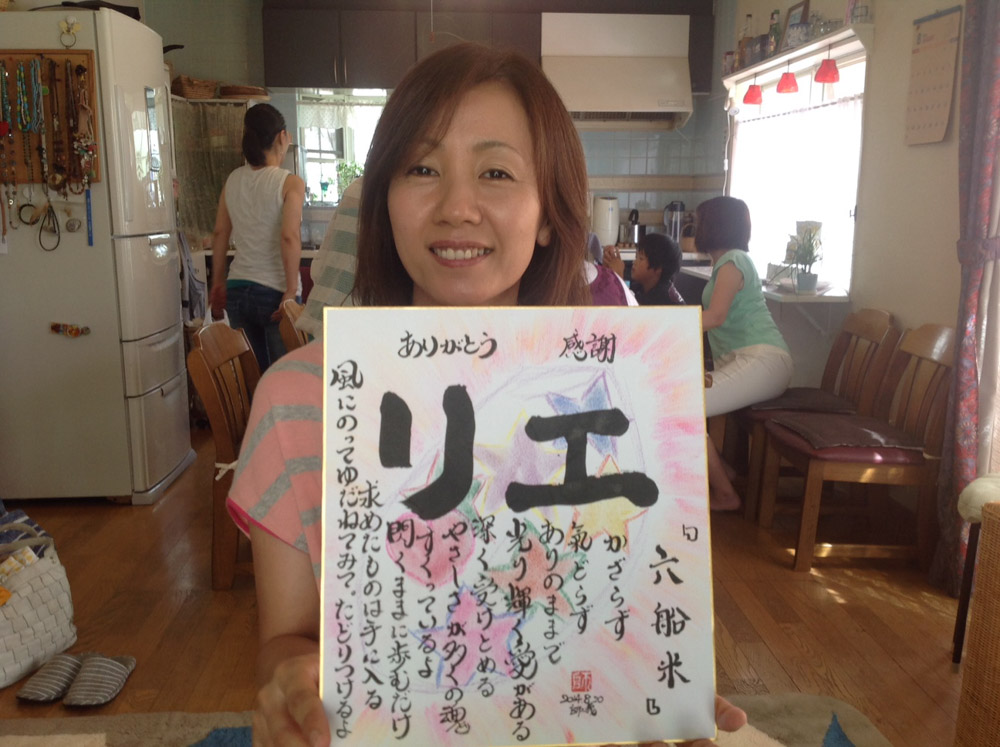 ありがとう 感謝
リエ
「六船米」
かざらず
氣どらず
ありのままで
光り輝く愛がある
深く受けとめる
やさしさが多くの魂
すくっているよ
閃くままに歩むだけ
求めたものは手に入る
風にのってゆだねてみて。たどりつけるよ
2014.8.20